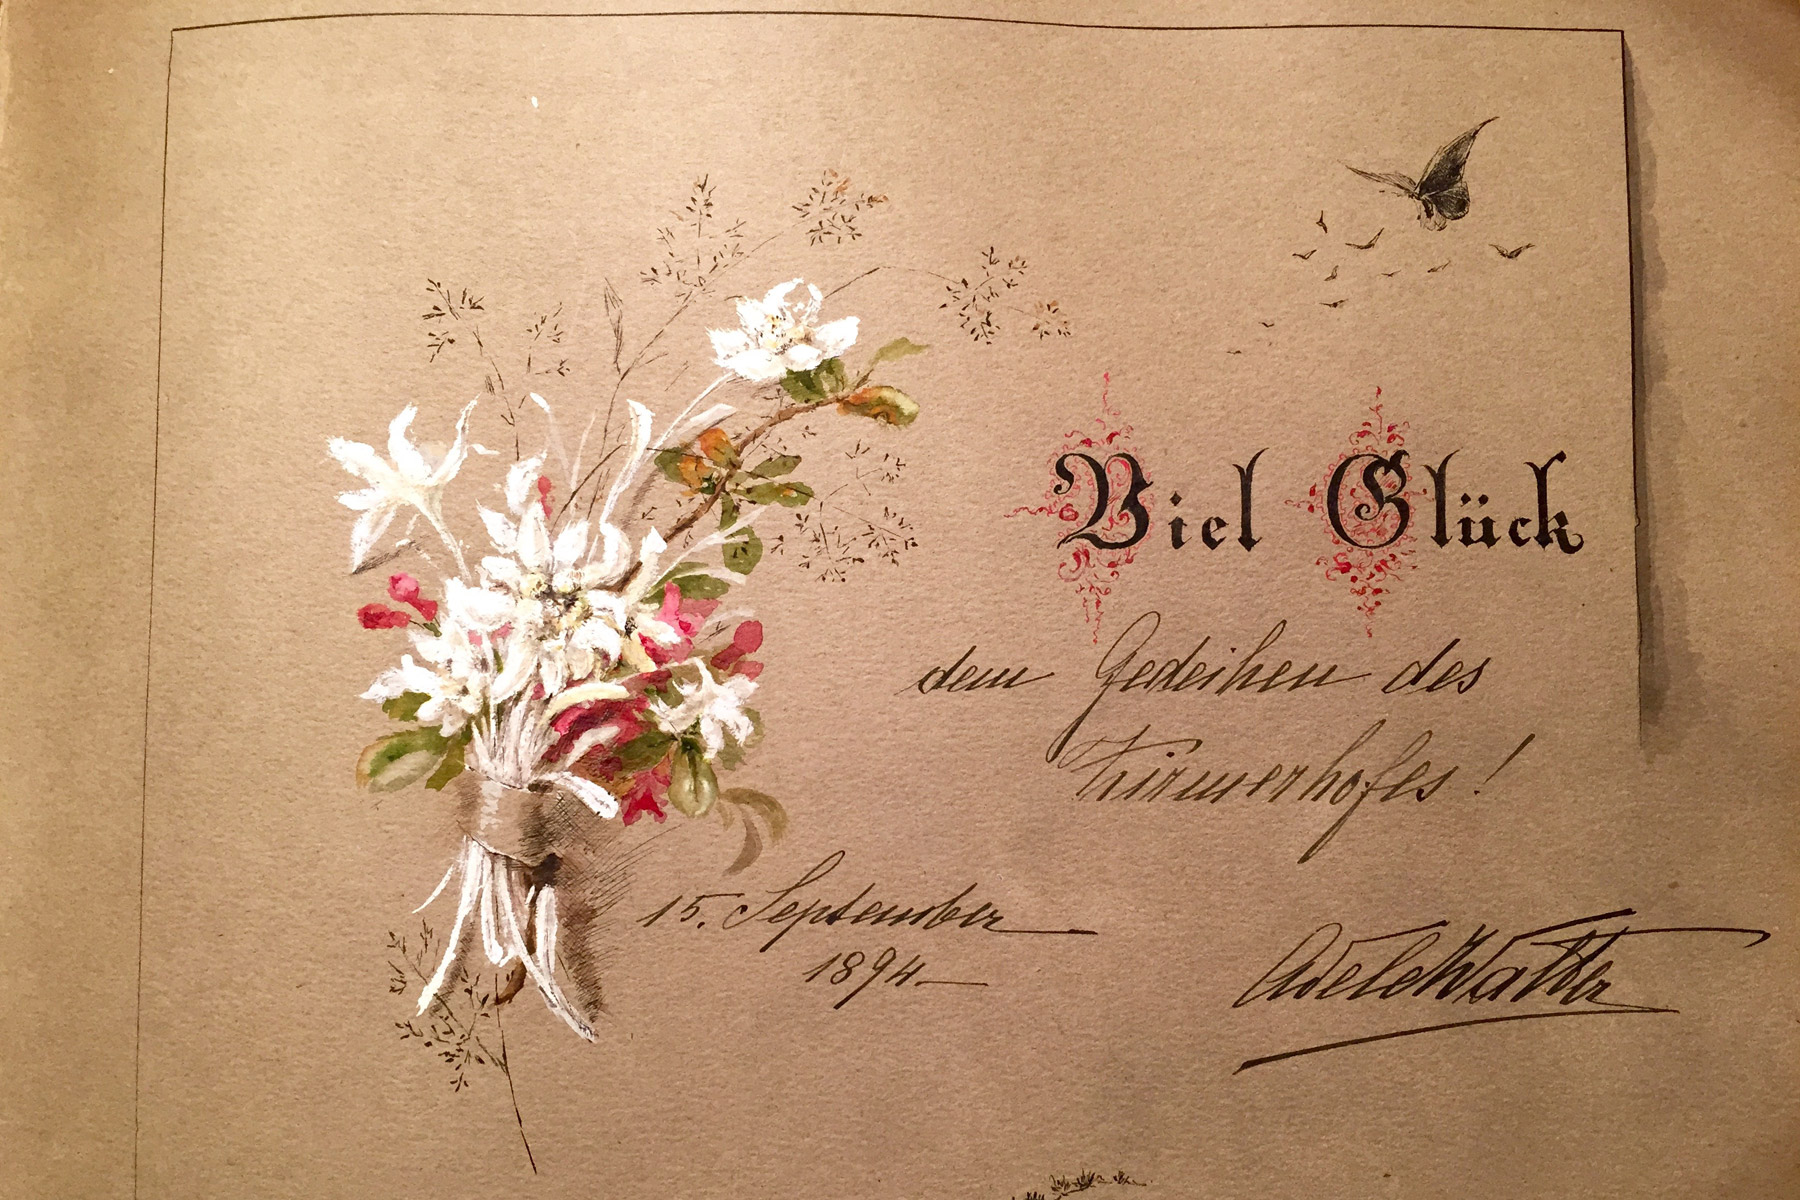 Viel Glück
dem Gedeihen des
Zirmerhofes!
15. September
1894.
Adele Walther